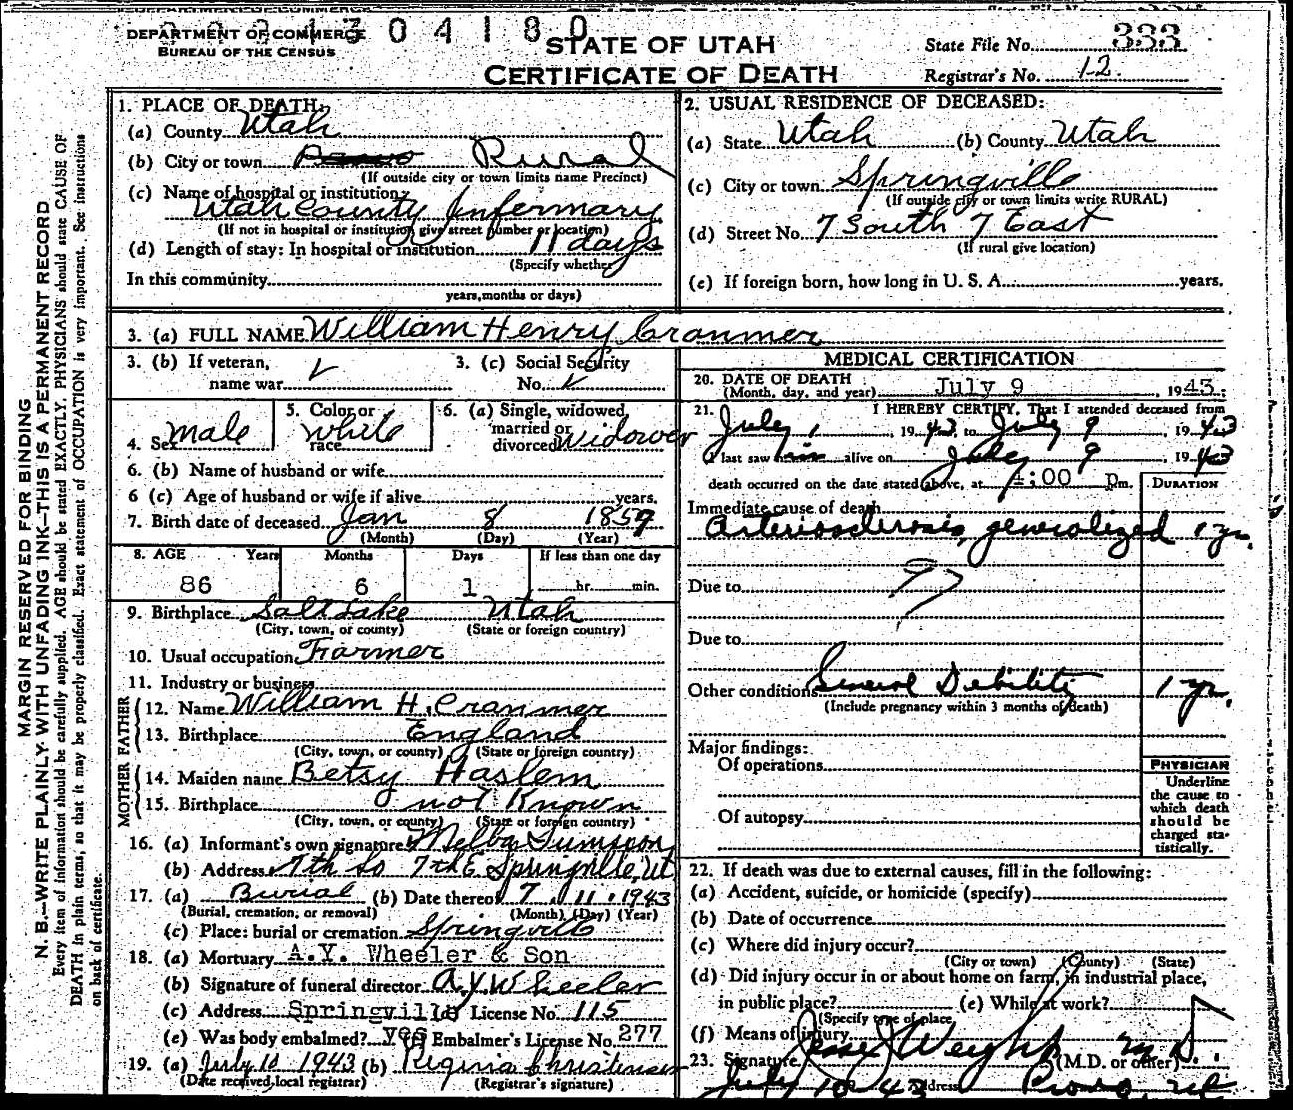 DEPARTMENT OF COMMERCE
BUREAU OF THE CENSUS
304180
STATE OF UTAH
CERTIFICATE OF DEATH
State File No. 333
Registrar's No. 12
MARGIN RESERVED FOR BINDING
N. B.—WRITE PLAINLY WITH UNFADING INK—THIS IS A PERMANENT RECORD
Every item of information should be carefully supplied. AGE should be stated EXACTLY. PHYSICIANS should state CAUSE OF
DEATH in plain terms, so that it may be properly classified. Exact statement of OCCUPATION is very important. See instructions
on back of certificate.
1. PLACE OF DEATH:
(a) County Utah
(b) City or town Rural
(If outside city or town limits name Precinct)
(c) Name of hospital or institution:
Utah County Infermary
(If not in hospital or institution give street number or location)
(d) Length of stay: In hospital or institution 11 days
(Specify whether
In this community
years, months or days)
2. USUAL RESIDENCE OF DECEASED:
(a) State Utah (b) County Utah
(c) City or town Springville
(If outside city or town limits write RURAL)
(d) Street No. 7 South 7 East
(If rural give location)
(e) If foreign born, how long in U. S. A. years.
3. (a) FULL NAME William Henry Cranmer
3. (b) If veteran, name war
3. (c) Social Security No.
4. Sex Male
5. Color or race White
6. (a) Single, widowed, married or divorced Widower
6. (b) Name of husband or wife
6 (c) Age of husband or wife if alive years.
7. Birth date of deceased Jan 8 1857
(Month) (Day) (Year)
8. AGE Years Months Days If less than one day
86 6 1 hr. min.
9. Birthplace Salt Lake Utah
(City, town, or county) (State or foreign country)
10. Usual occupation Farmer
11. Industry or business
FATHER
12. Name William H. Cranmer
13. Birthplace England
(City, town, or county) (State or foreign country)
MOTHER
14. Maiden name Betsy Haslem
15. Birthplace not Known
(City, town, or county) (State or foreign country)
16. (a) Informant's own signature Melba
(b) Address 7th So 7th E. Springville, Ut
17. (a) Burial (b) Date thereof 7 11 1943
(Burial, cremation, or removal) (Month) (Day) (Year)
(c) Place: burial or cremation Springville
18. (a) Mortuary A.Y. Wheeler & Son
(b) Signature of funeral director A.Y. Wheeler
(c) Address Springville (d) License No. 115
(e) Was body embalmed? yes Embalmer's License No. 277
19. (a) July 10 1943 (b) Reginia Christensen
(Date received local registrar) (Registrar's signature)
MEDICAL CERTIFICATION
20. DATE OF DEATH
(Month, day, and year) July 9 1943
21. I HEREBY CERTIFY, That I attended deceased from
July 1, 1943, to July 9, 1943
I last saw him alive on July 9, 1943
death occurred on the date stated above, at :00 Pm.
DURATION
Immediate cause of death
Arteriosclerosis, generalized 1 yr.
97
Due to
Due to
Other conditions General Debility 1 yr.
(Include pregnancy within 3 months of death)
Major findings:
Of operations
Of autopsy
PHYSICIAN
Underline
the cause to
which death
should be
charged sta-
tistically.
22. If death was due to external causes, fill in the following:
(a) Accident, suicide, or homicide (specify)
(b) Date of occurrence
(c) Where did injury occur?
(City or town) (County) (State)
(d) Did injury occur in or about home on farm, in industrial place,
in public place? (e) While at work?
(Specify type of place
(f) Means of injury
23. Signature Jesse J Weight M.D. (M.D. or other)
July 10 43 Address Provo, Ut